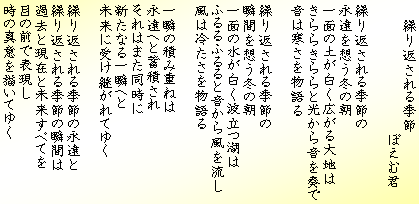 繰り返される季節
ぽえむ君
繰り返される季節の
永遠を想う冬の朝
一面の土が白く広がる大地は
きららきららと光から音を奏で
音は寒さを物語る
繰り返される季節の
瞬間を想う冬の朝
一面の水が白く波立つ湖は
ふるるふるると音から風を流し
風は冷たさを物語る
一瞬の積み重ねは
永遠へと蓄積され
それはまた同時に
新たなる一瞬へと
未来に受け継がれてゆく
繰り返される季節の永遠と
繰り返される季節の瞬間は
過去と現在と未来すべてを
目の前で表現し
時の真意を描いてゆく